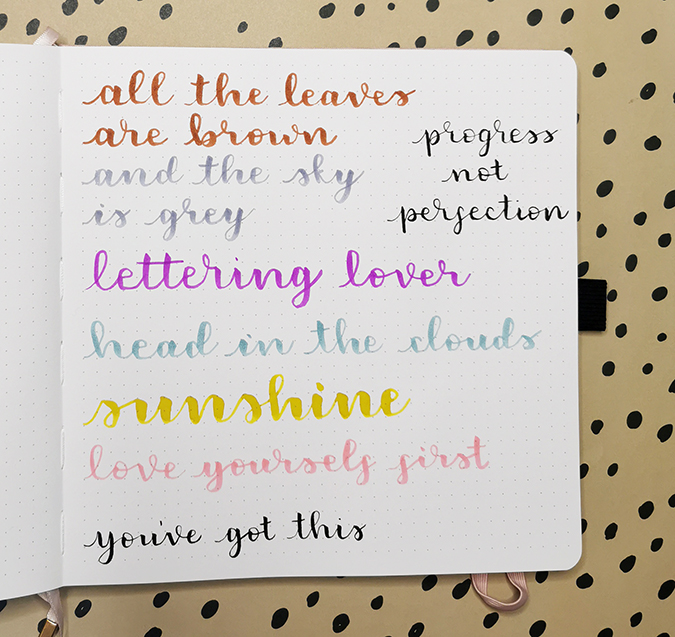 all the leaves
are brown
and the sky
is grey
progress
not
perfection
lettering lover
head in the clouds
sunshine
love yourself first
you've got this